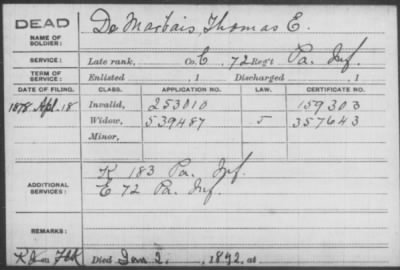 DEAD
NAME OF SOLDIER: De Marbais, Thomas E.
SERVICE: Late rank, Co. E, 72 Reg't Pa. Inf.
TERM OF SERVICE: Enlisted , 1 Discharged , 1
DATE OF FILING. CLASS. APPLICATION NO. LAW. CERTIFICATE NO.
1878 Apl. 18 Invalid, 253010 159303
Widow, 539487 5 357643
Minor,
ADDITIONAL SERVICES: K 183 Pa. Inf.
E 72 Pa. Inf.
REMARKS:
Died Jan 2, 1892, at